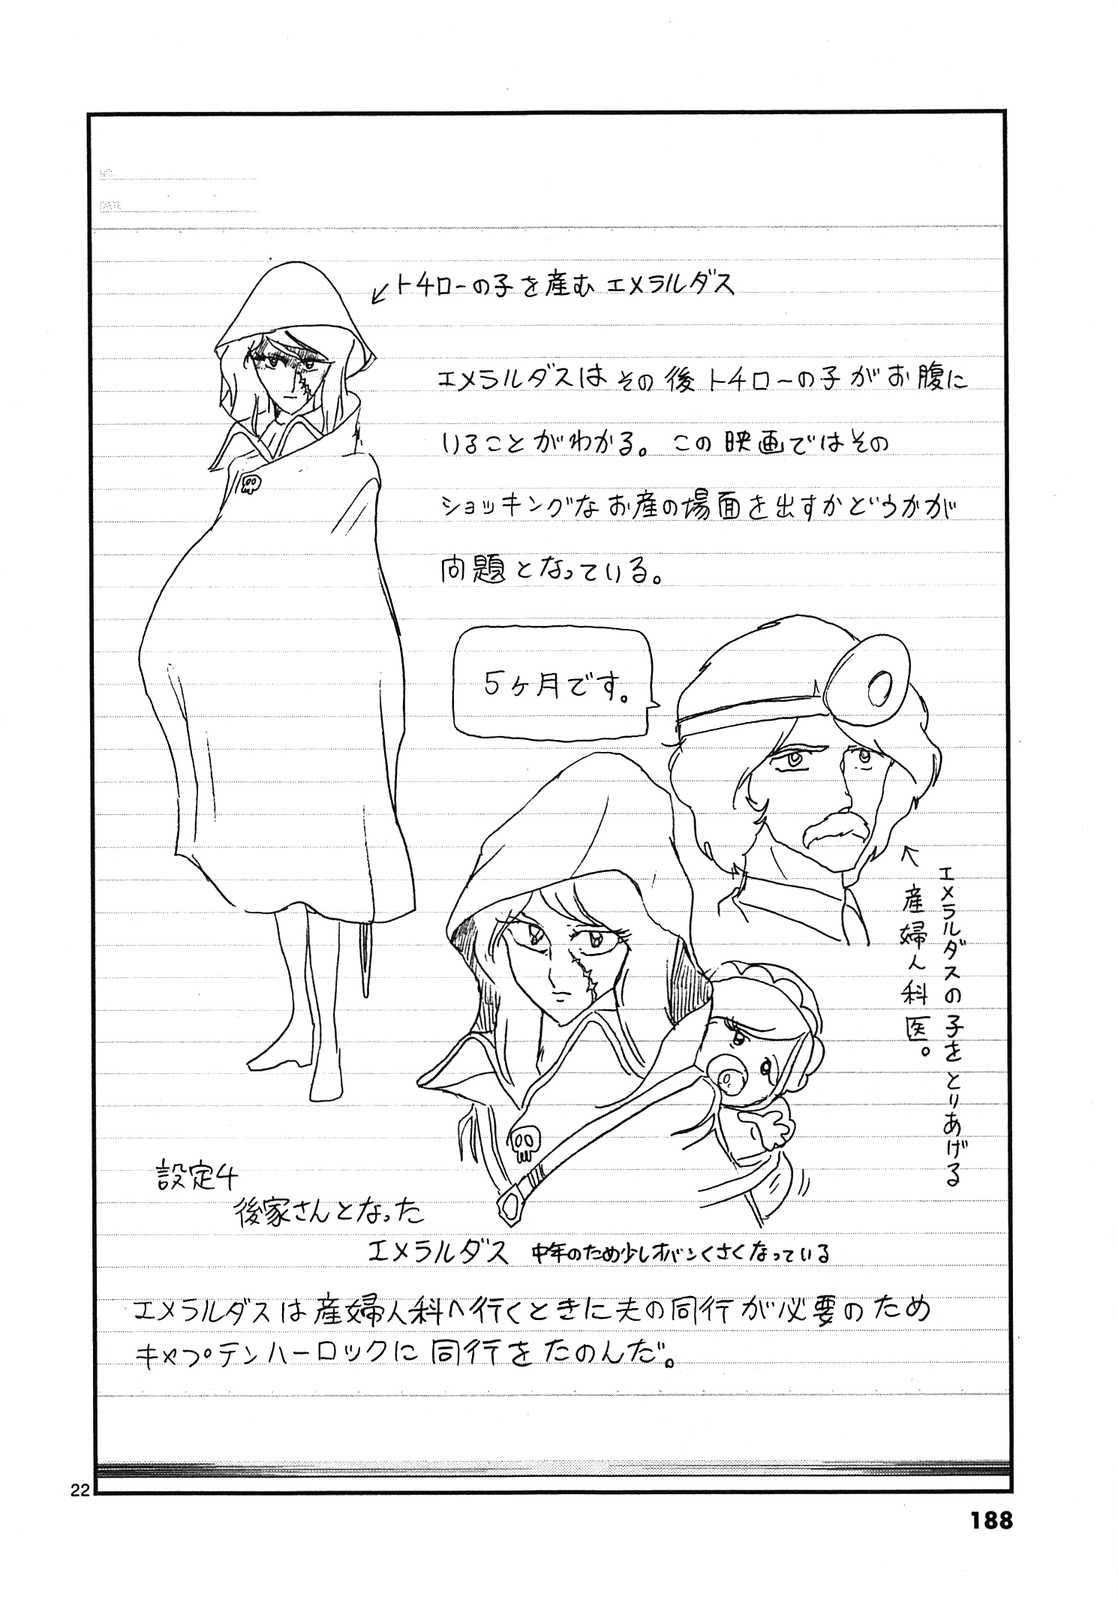 NO.
DATE
トチローの子を産むエメラルダス
エメラルダスはその後トチローの子がお腹に
いることがわかる。この映画ではその
ショッキングなお産の場面を出すかどうかが
問題となっている。
5ヶ月です。
エメラルダスの子をとりあげる
産婦人科医。
設定4
後家さんとなった
エメラルダス 中年のため少しオバンくさくなっている
エメラルダスは産婦人科へ行くときに夫の同行が必要のため
キャプテンハーロックに同行をたのんだ。
22
188